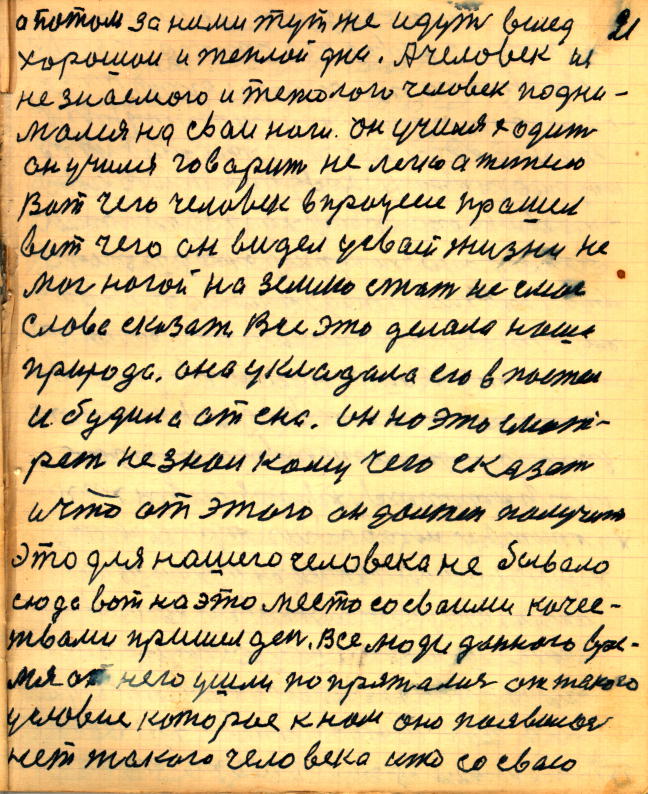 а потом за ними тут же идут вслед 21
хорошои и теплой дни. А человек из
не знаемого и тежолого человек подни-
мался на сваи ноги. он учился ходит
он учился говорит не легко а тежело
Вот чего человек в процесе прашел
вот чего он видел усваей жизни не
мог ногой на землю стат не смог
слова сказат. Все это делала наша
природа. она укладала его в постел
и будила от сна. он на это смот-
рет не знал кому чего сказат
и что от этого он должен получит
это для нашего человека не бывало
сюда вот на это место со сваими качес-
твами пришел ден. Все люди данного вре-
мя от него ушли попрятался от такого
условие которое к нам оно появился
нет такого человека што со сваю